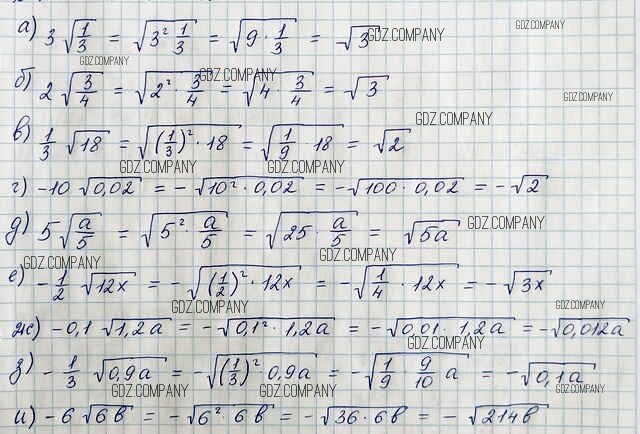 а) 3 √(1/3) = √(3² 1/3) = √(9 · 1/3) = √3
GDZ.COMPANY
GDZ.COMPANY
GDZ.COMPANY
б) 2 √(3/4) = √(2² · 3/4) = √(4 · 3/4) = √3
GDZ.COMPANY
GDZ.COMPANY
GDZ.COMPANY
в) 1/3 √18 = √((1/3)² · 18) = √(1/9 · 18) = √2
GDZ.COMPANY
GDZ.COMPANY
г) -10 √0,02 = -√(10² · 0,02) = -√(100 · 0,02) = -√2
д) 5√(a/5) = √(5² · a/5) = √(25 · a/5) = √5a
GDZ.COMPANY
GDZ.COMPANY
GDZ.COMPANY
е) -1/2 √12x = -√((1/2)² · 12x) = -√(1/4 · 12x) = -√3x
GDZ.COMPANY
GDZ.COMPANY
ж) -0,1 √1,2a = -√(0,1² · 1,2a) = -√(0,01 · 1,2a) = -√0,012a
GDZ.COMPANY
з) -1/3 √0,9a = -√((1/3)² 0,9a) = -√(1/9 · 9/10 a) = -√0,1a
GDZ.COMPANY
GDZ.COMPANY
GDZ.COMPANY
и) -6 √6в = -√(6² · 6в) = -√(36 · 6в) = -√214в